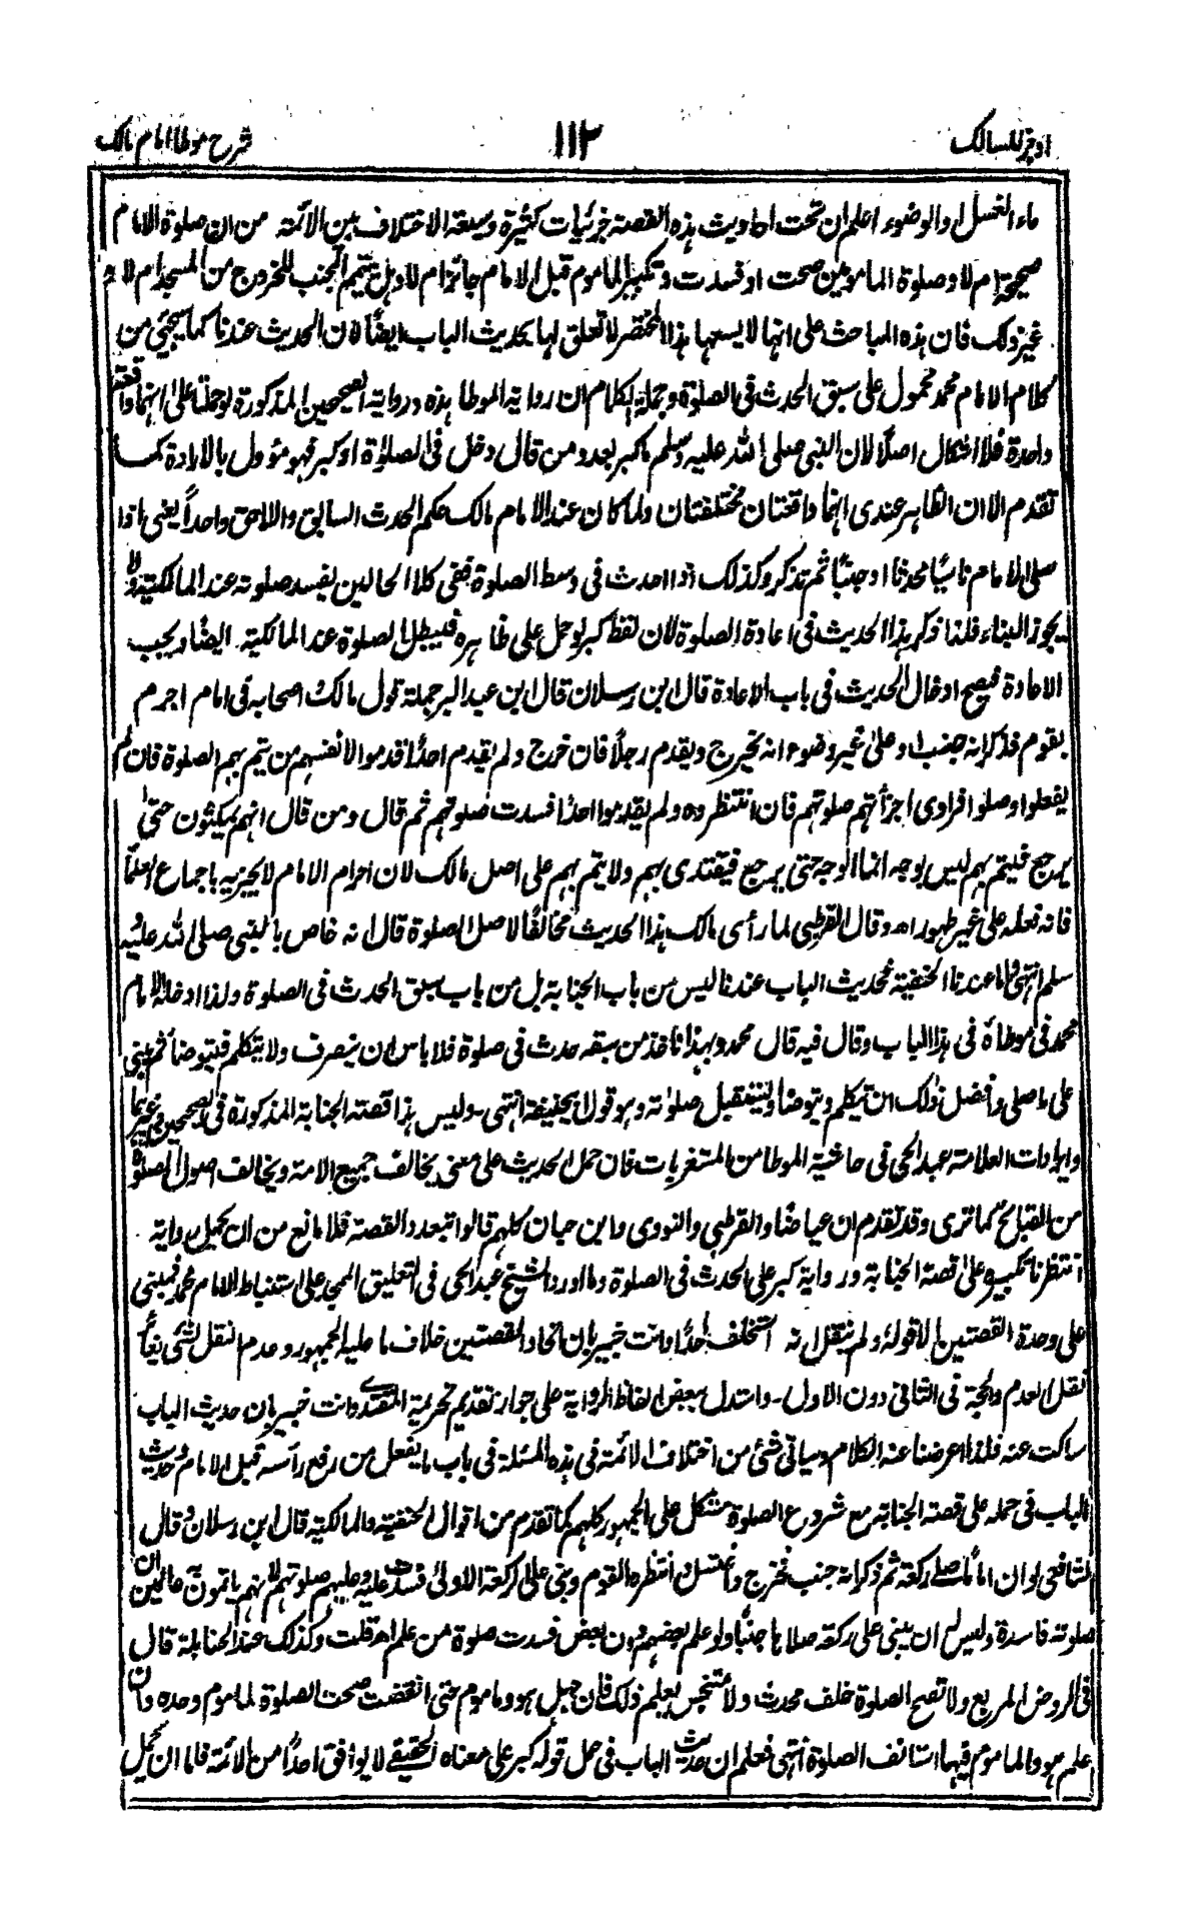 اوجز المسالك ١١٢ شرح موطا امام مالك
ماء الغسل او الوضوء اعلم ان تحت احاديث هذه القصة جزئيات كثيرة وسيعة الاختلاف بين الائمة من ان صلوة الامام
صحيحة ام لا وصلوة المامومين صحت او فسدت وتكبير الماموم قبل الامام جائز ام لا وهل يتيمم الجنب للخروج من المسجد ام لا و
غير ذلك فان هذه المباحث على انها لا يسعها هذا المختصر لا تعلق لها بحديث الباب ايضاً لان الحديث عندنا كما سيجيئ من
كلام الامام محمد محمول على سبق الحدث في الصلوة وجملة الكلام ان رواية الموطا هذه ورواية الصحيحين المذكورة لو حملتا على انهما واقعة
واحدة فلا اشكال اصلاً لان النبي صلى الله عليه وسلم ما كبر بعد ومن قال دخل في الصلوة او كبر فهو مؤول بالارادة كما
تقدم الا ان الظاهر عندي انهما واقعتان مختلفتان ولما كان عند الامام مالك حكم الحدث السابق واللاحق واحداً يعني اذا
صلى الامام ناسيًا محدثا او جنبًا ثم تذكر وكذلك اذا احدث في وسط الصلوة ففي كلا الحالين يفسد صلوته عند المالكية ولا
يجوز البناء فلذا ذكر هذا الحديث في اعادة الصلوة لان لفظ كبر لو حمل على ظاهره فيبطل الصلوة عند المالكية ايضًا ويجب
الاعادة فيصح ادخال الحديث في باب الاعادة قال ابن رسلان قال ابن عبد البر جملة قول مالك واصحابه في امام احرم
بقوم فذكر انه جنب او على غير وضوء انه يخرج ويقدم رجلاً فان خرج ولم يقدم احدًا قدموا لانفسهم من يتم بهم الصلوة فان لم
يفعلوا وصلوا فرادى اجزأتهم صلوتهم فان انتظروه ولم يقدموا احدًا فسدت صلوتهم ثم قال ومن قال انهم يمكثون حتى
يرجع فيتم بهم ليس بوجه انما الوجه حتى يرجع فيقتدى بهم ولا يتم بهم على اصل مالك لان احرام الامام لا يجزيه باجماع العلماء
فانه فعله على غير طهور اه وقال القرطبي لما رأى مالك هذا الحديث مخالفًا لاصل الصلوة قال انه خاص بالنبي صلى الله عليه و
سلم انتهى واما عندنا الحنفية فحديث الباب عندنا ليس من باب الجنابة بل من باب سبق الحدث في الصلوة ولذا ادخله الامام
محمد في موطاه في هذا الباب وقال فيه قال محمد وبهذا ناخذ من سبقه حدث في صلوة فلا باس ان ينصرف ولا يتكلم فيتوضأ ثم يبني
على ما صلى وافضل ذلك ان يتكلم ويتوضأ ويستقبل صلوته وهو قول ابي حنيفة انتهى۔ وليس هذا قصة الجنابة المذكورة في الصحيحين وغيرهما
وايرادات العلامة عبد الحي في حاشية الموطا من المستغربات فان حمل الحديث على معنى يخالف جميع الامة ويخالف اصول الصلوة
من القبائح كما ترى وقد تقدم ان عياضًا والقرطبي والنووي وابن حبان كلهم قالوا بتعدد القصة فلا مانع من ان يحمل رواية
انتظرنا تكبيره على قصة الجنابة ورواية كبر على الحدث في الصلوة وما اورد الشيخ عبد الحي في التعليق الممجد على استنباط الامام محمد فمبني
على وحدة القصتين الا قوله ولم ينقل انه استخلف احدًا وانت خبير بان اتحاد القصتين خلاف ما عليه الجمهور وعدم النقل لشئ
نقل العدم والحجة في الثاني دون الاول۔ واستدل ببعض الفاظ الرواية على جواز تقديم تحريمة المقتدي وانت خبير بان حديث الباب
ساكت عنه فلذا اعرضنا عنه الكلام وسياتي شئ من اختلاف الائمة في هذه المسئلة في باب ما يفعل من رفع رأسه قبل الامام وحديث
الباب في حمله على قصة الجنابة مع شروع الصلوة مشكل على الجمهور كلهم كما تقدم من اقوال الحنفية والمالكية قال ابن رسلان وقال
الشافعي لو ان اماماً صلى ركعة ثم ذكر انه جنب فخرج واغتسل وانتظره القوم وبنى على الركعة الاولى فسدت عليه وعليهم صلوتهم لانهم ياتمون به عالمين ان
صلوته فاسدة وليس له ان يبني على ركعة صلاها جنبًا ولو علم بعضهم دون بعض فسدت صلوة من علم اهـ قلت وكذلك عند الحنابلة قال
في الروض المربع ولا تصح الصلوة خلف محدث ولا متنجس يعلم ذلك فان جهل هو وماموم حتى انقضت صحت الصلوة لماموم وحده وان
علم هو والماموم فيها استانف الصلوة انتهى فعلم ان حديث الباب في حمل قوله كبر على معناه الحقيقي لا يوافق احدًا من الائمة فاما ان يحمل